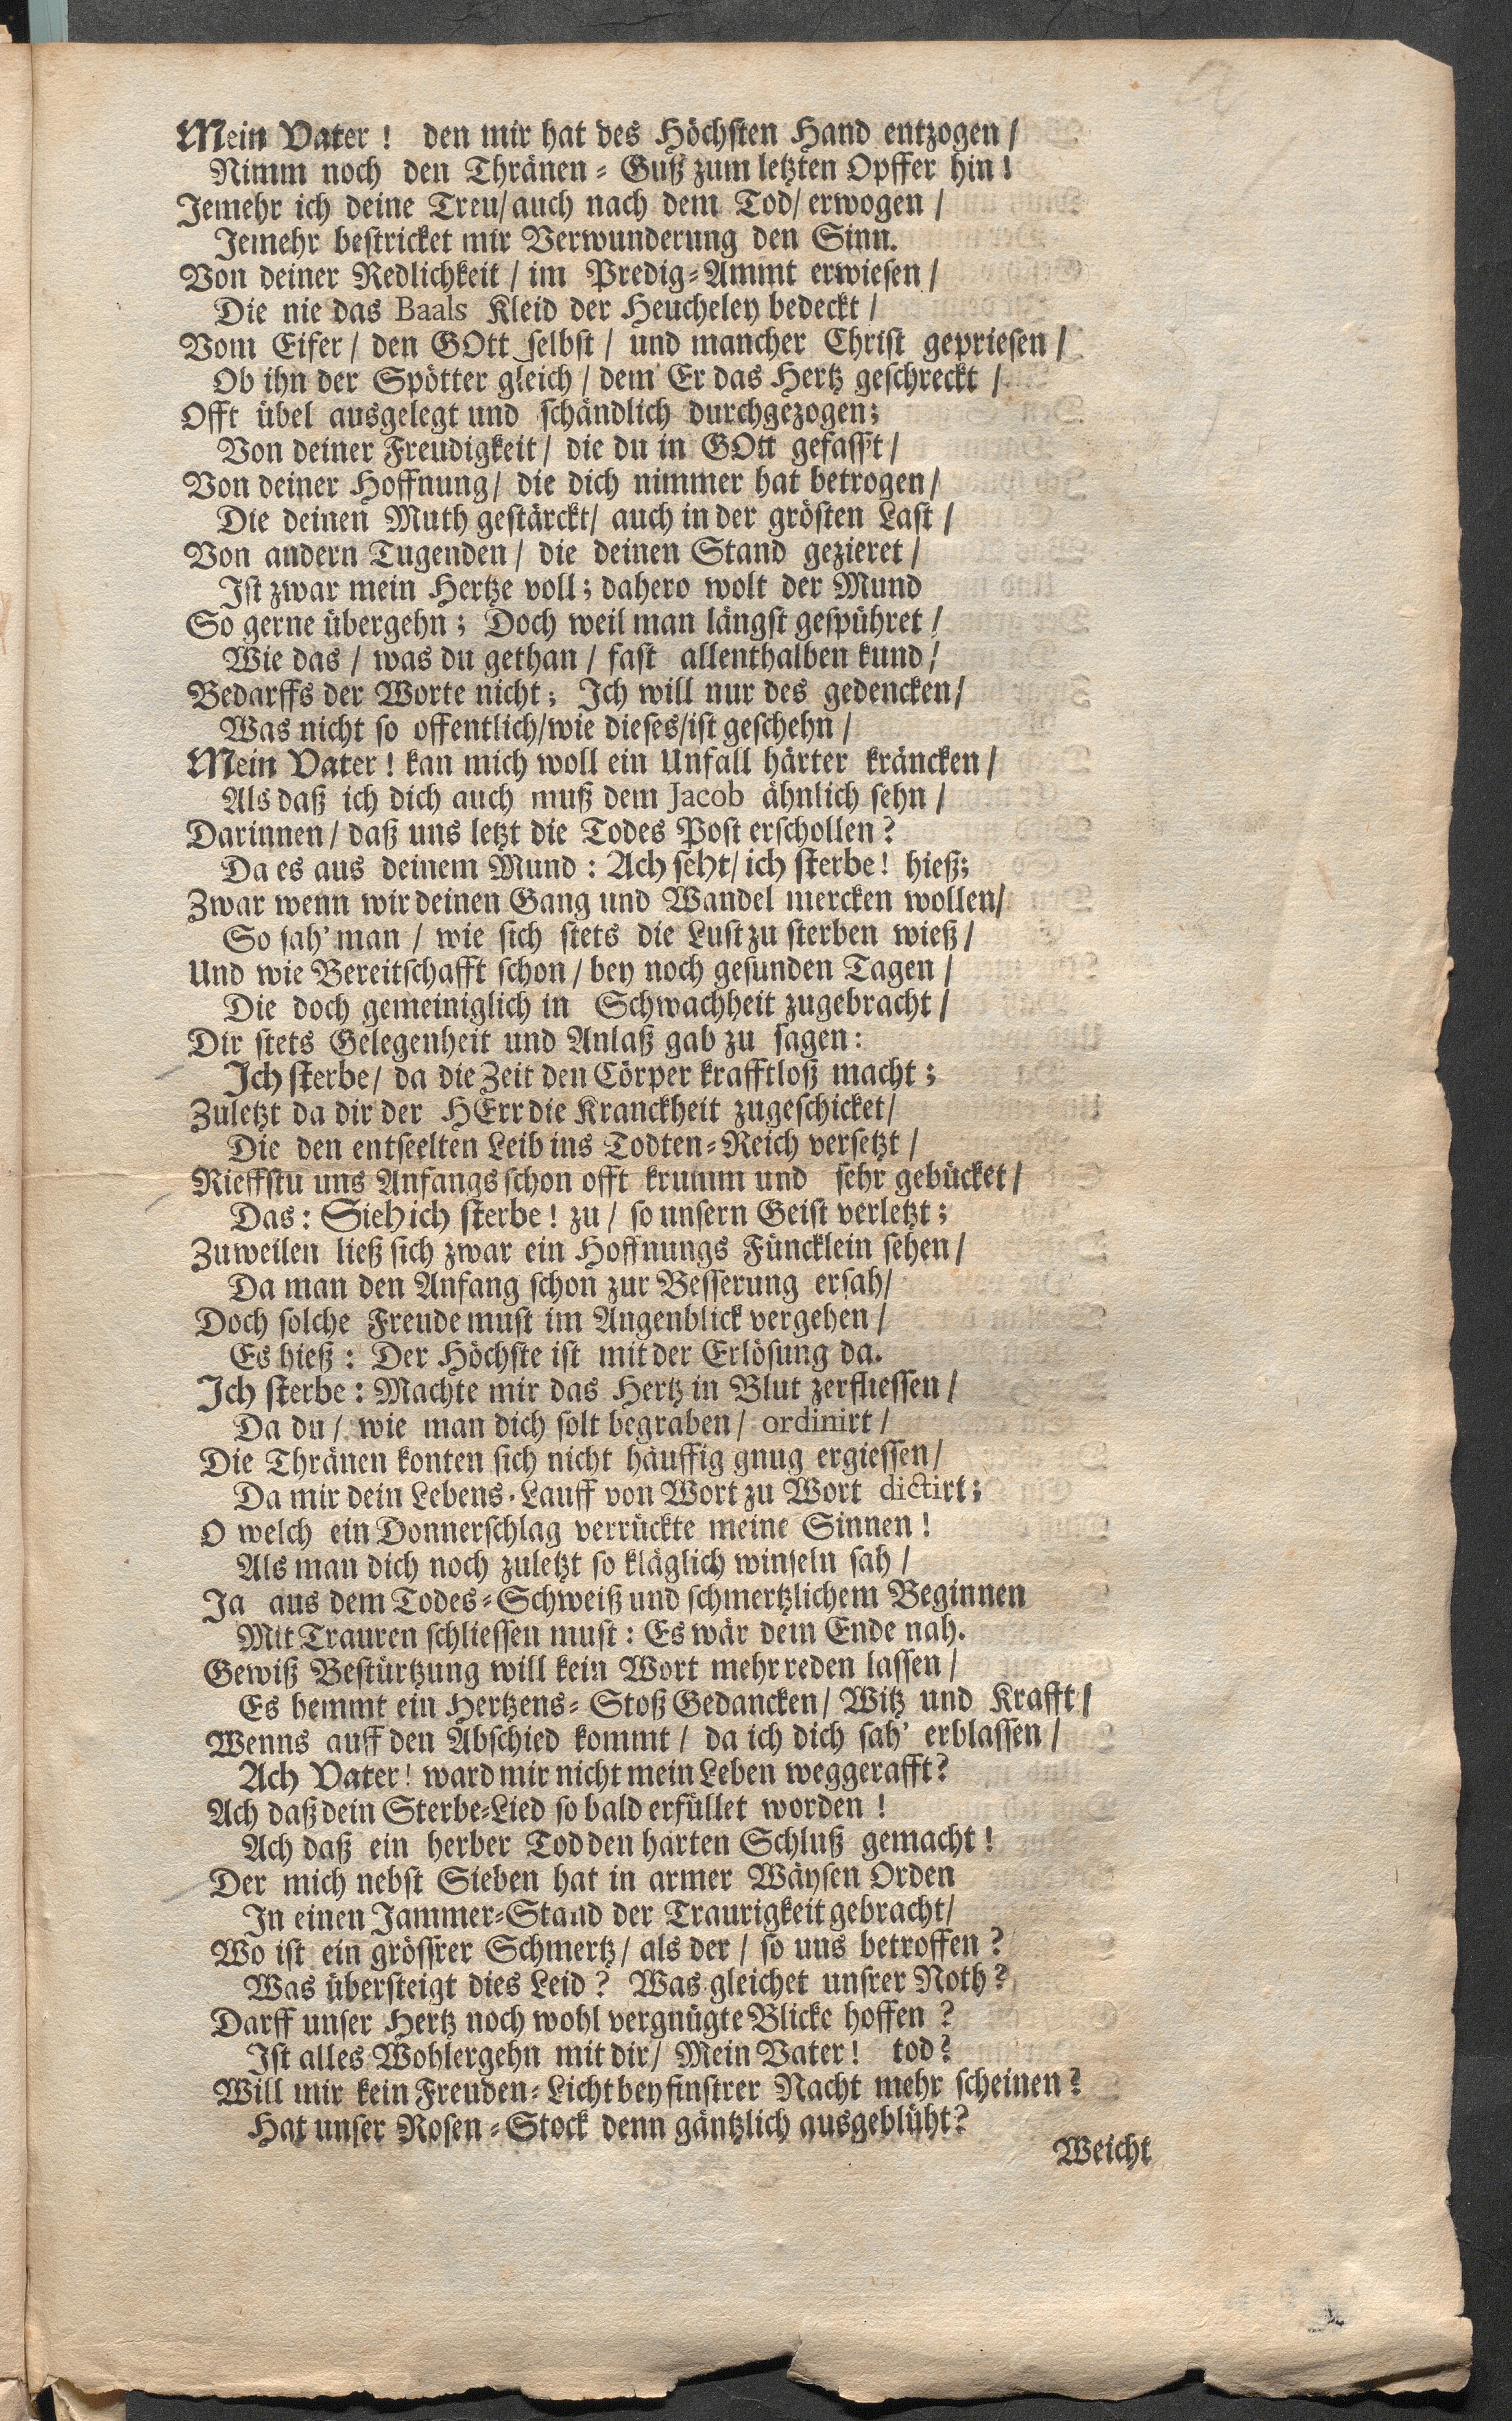 Mein Vater! den mir hat des Höchsten Hand entzogen /
Nimm noch den Thränen-Guß zum letzten Opffer hin!
Jemehr ich deine Treu/ auch nach dem Tod/ erwogen /
Jemehr bestricket mir Verwunderung den Sinn.
Von deiner Redlichkeit / im Predig-Ammt erwiesen /
Die nie das Baals Kleid der Heucheley bedeckt /
Vom Eifer / den GOtt selbst / und mancher Christ gepriesen /
Ob ihn der Spötter gleich / dem Er das Hertz geschreckt /
Offt übel ausgelegt und schändlich durchgezogen;
Von deiner Freudigkeit / die du in GOtt gefass't /
Von deiner Hoffnung / die dich nimmer hat betrogen /
Die deinen Muth gestärckt / auch in der grösten Last /
Von andern Tugenden / die deinen Stand gezieret /
Ist zwar mein Hertze voll; dahero wolt der Mund
So gerne übergehn; Doch weil man längst gespühret /
Wie das / was du gethan / fast allenthalben kund /
Bedarffs der Worte nicht; Ich will nur des gedencken /
Was nicht so offentlich/wie dieses/ist geschehn /
Mein Vater! kan mich woll ein Unfall härter kräncken /
Als daß ich dich auch muß dem Jacob ähnlich sehn /
Darinnen / daß uns letzt die Todes Post erschollen?
Da es aus deinem Mund: Ach seht/ ich sterbe! hieß;
Zwar wenn wir deinen Gang und Wandel mercken wollen/
So sah' man / wie sich stets die Lust zu sterben wieß /
Und wie Bereitschafft schon / bey noch gesunden Tagen /
Die doch gemeiniglich in Schwachheit zugebracht /
Dir stets Gelegenheit und Anlaß gab zu sagen:
Ich sterbe/ da die Zeit den Cörper krafftloß macht;
Zuletzt da dir der HErr die Kranckheit zugeschicket/
Die den entseelten Leib ins Todten-Reich versetzt /
Rieffstu uns Anfangs schon offt krumm und sehr gebücket /
Das: Sieh ich sterbe! zu / so unsern Geist verletzt;
Zuweilen ließ sich zwar ein Hoffnungs Füncklein sehen /
Da man den Anfang schon zur Besserung ersah/
Doch solche Freude must im Augenblick vergehen /
Es hieß: Der Höchste ist mit der Erlösung da.
Ich sterbe: Machte mir das Hertz in Blut zerfliessen /
Da du / wie man dich solt begraben / ordinirt /
Die Thränen konten sich nicht häuffig gnug ergiessen /
Da mir dein Lebens-Lauff von Wort zu Wort dictirt;
O welch ein Donnerschlag verrückte meine Sinnen!
Als man dich noch zuletzt so kläglich winseln sah /
Ja aus dem Todes-Schweiß und schmertzlichem Beginnen
Mit Trauren schliessen must: Es wär dem Ende nah.
Gewiß Bestürtzung will kein Wort mehr reden lassen /
Es hemmt ein Hertzens-Stoß Gedancken / Witz und Krafft /
Wenns auff den Abschied kommt / da ich dich sah' erblassen /
Ach Vater! ward mir nicht mein Leben weggerafft?
Ach daß dein Sterbe-Lied so bald erfüllet worden!
Ach daß ein herber Tod den harten Schluß gemacht!
Der mich nebst Sieben hat in armer Wäysen Orden
In einen Jammer-Stand der Traurigkeit gebracht/
Wo ist ein grössrer Schmertz / als der / so uns betroffen?
Was übersteigt dies Leid? Was gleichet unsrer Noth?
Darff unser Hertz noch wohl vergnügte Blicke hoffen?
Ist alles Wohlergehn mit dir / Mein Vater! tod?
Will mir kein Freuden-Licht bey finstrer Nacht mehr scheinen?
Hat unser Rosen-Stock denn gäntzlich ausgeblüht?
Weicht